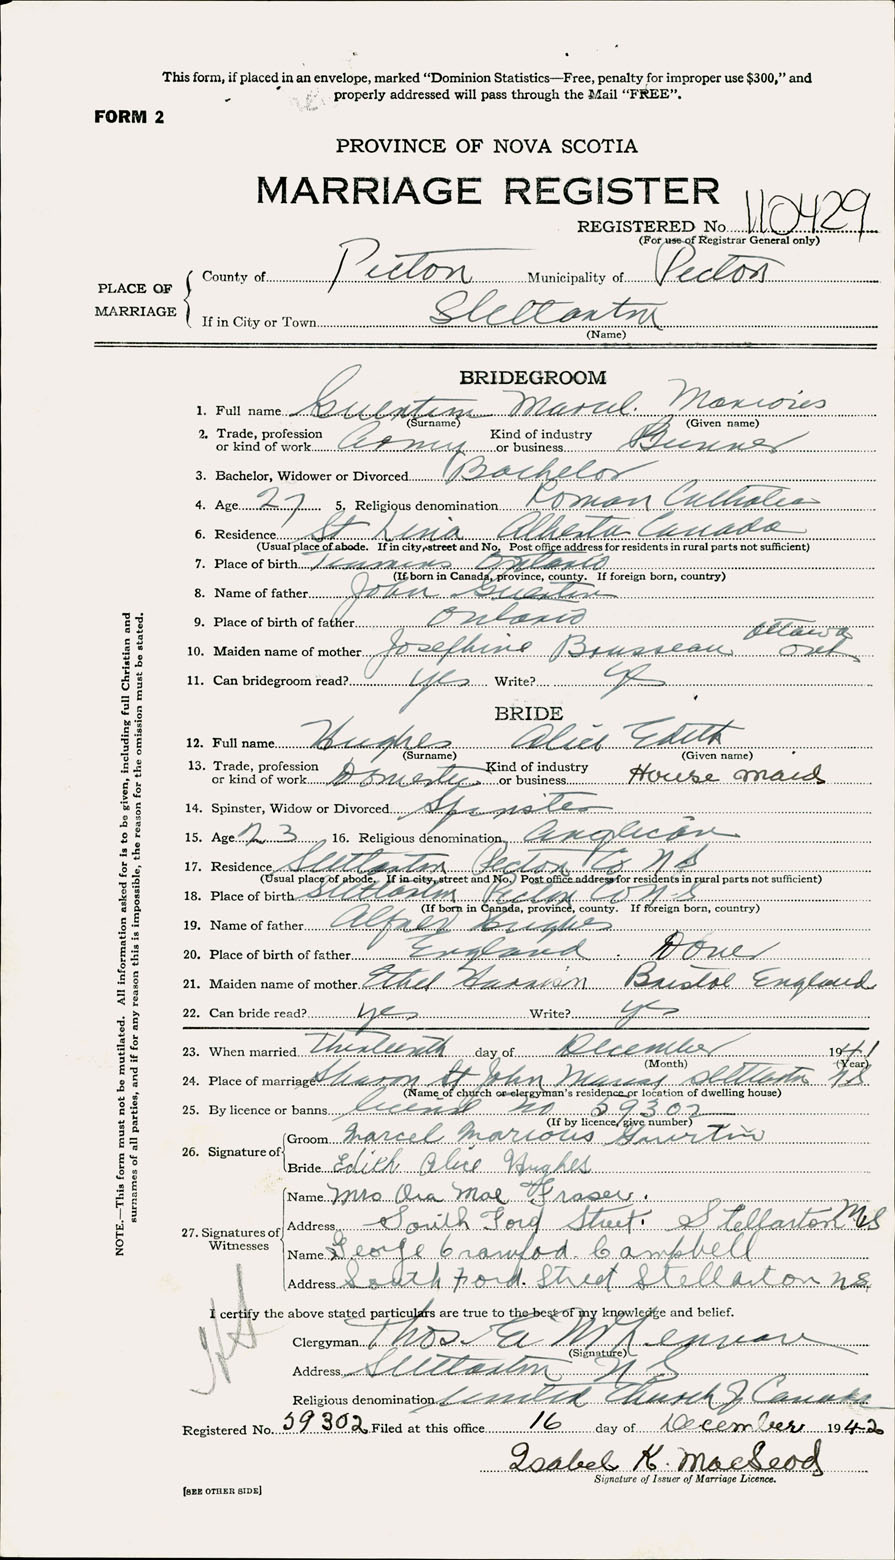 This form, if placed in an envelope, marked "Dominion Statistics—Free, penalty for improper use $300," and
properly addressed will pass through the Mail "FREE".
FORM 2
PROVINCE OF NOVA SCOTIA
MARRIAGE REGISTER
REGISTERED No. 110429
(For use of Registrar General only)
PLACE OF MARRIAGE
County of Pictou Municipality of Pictou
If in City or Town Stellarton
(Name)
BRIDEGROOM
1. Full name Guertin Marcel Marioies
(Surname) (Given name)
2. Trade, profession or kind of work Army Kind of industry or business Gunner
3. Bachelor, Widower or Divorced Bachelor
4. Age 27 5. Religious denomination Roman Catholic
6. Residence St Lina Alberta Canada
(Usual place of abode. If in city, street and No. Post office address for residents in rural parts not sufficient)
7. Place of birth Timmins Ontario
(If born in Canada, province, county. If foreign born, country)
8. Name of father John Guertin
9. Place of birth of father Ontario
10. Maiden name of mother Josephine Brusseau Ottawa Ont
11. Can bridegroom read? yes Write? yes
BRIDE
12. Full name Hughes Alice Edith
(Surname) (Given name)
13. Trade, profession or kind of work Domestic Kind of industry or business House maid
14. Spinster, Widow or Divorced Spinster
15. Age 23 16. Religious denomination Anglican
17. Residence Stellarton Pictou Co N S
(Usual place of abode. If in city, street and No. Post office address for residents in rural parts not sufficient)
18. Place of birth Stellarton Pictou Co N S
(If born in Canada, province, county. If foreign born, country)
19. Name of father Alfred Hughes
20. Place of birth of father England. Dover
21. Maiden name of mother Ethel Harrison Bristol England
22. Can bride read? yes Write? yes
23. When married Thirteenth day of December 1941
(Month) (Year)
24. Place of marriage Sharon St John Manse Stellarton N S
(Name of church or clergyman's residence or location of dwelling house)
25. By licence or banns license no 59302
(If by licence, give number)
26. Signature of
Groom Marcel Marious Guertin
Bride Edith Alice Hughes
27. Signatures of Witnesses
Name Mrs Ora Mae Fraser.
Address South Ford Street. Stellarton N S
Name George Crawford Campbell
Address South Ford. Street Stellarton N S
I certify the above stated particulars are true to the best of my knowledge and belief.
Clergyman Thos
(Signature)
Address Stellarton N S
Religious denomination United Church of Canada
Registered No. 59302 Filed at this office 16 day of December 1942
Isabel K. MacLeod
Signature of Issuer of Marriage Licence.
[SEE OTHER SIDE]
NOTE.—This form must not be mutilated. All information asked for is to be given, including full Christian and
surnames of all parties, and if for any reason this is impossible, the reason for the omission must be stated.